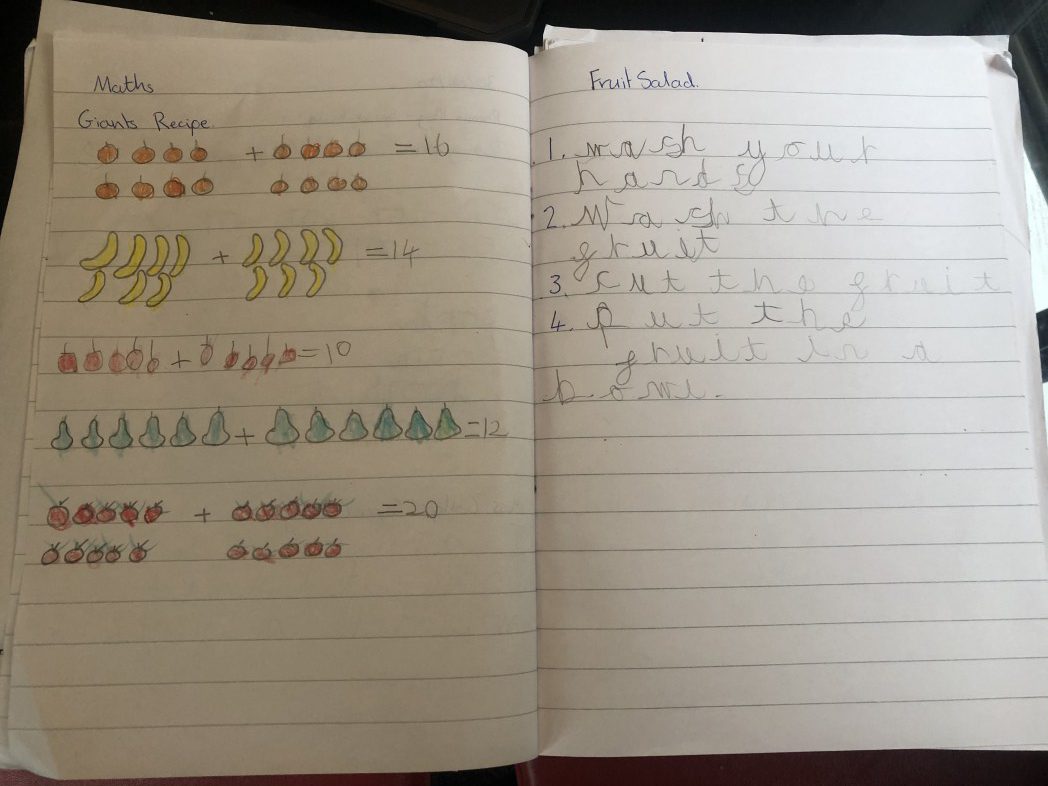 Maths
Giants Recipe
+ = 16
+ = 14
+ = 10
+ = 12
+ = 20
Fruit Salad.
1. wash your
hands
2. Wash the
fruit
3. cut the fruit
4. put the
fruit in a
bowl.